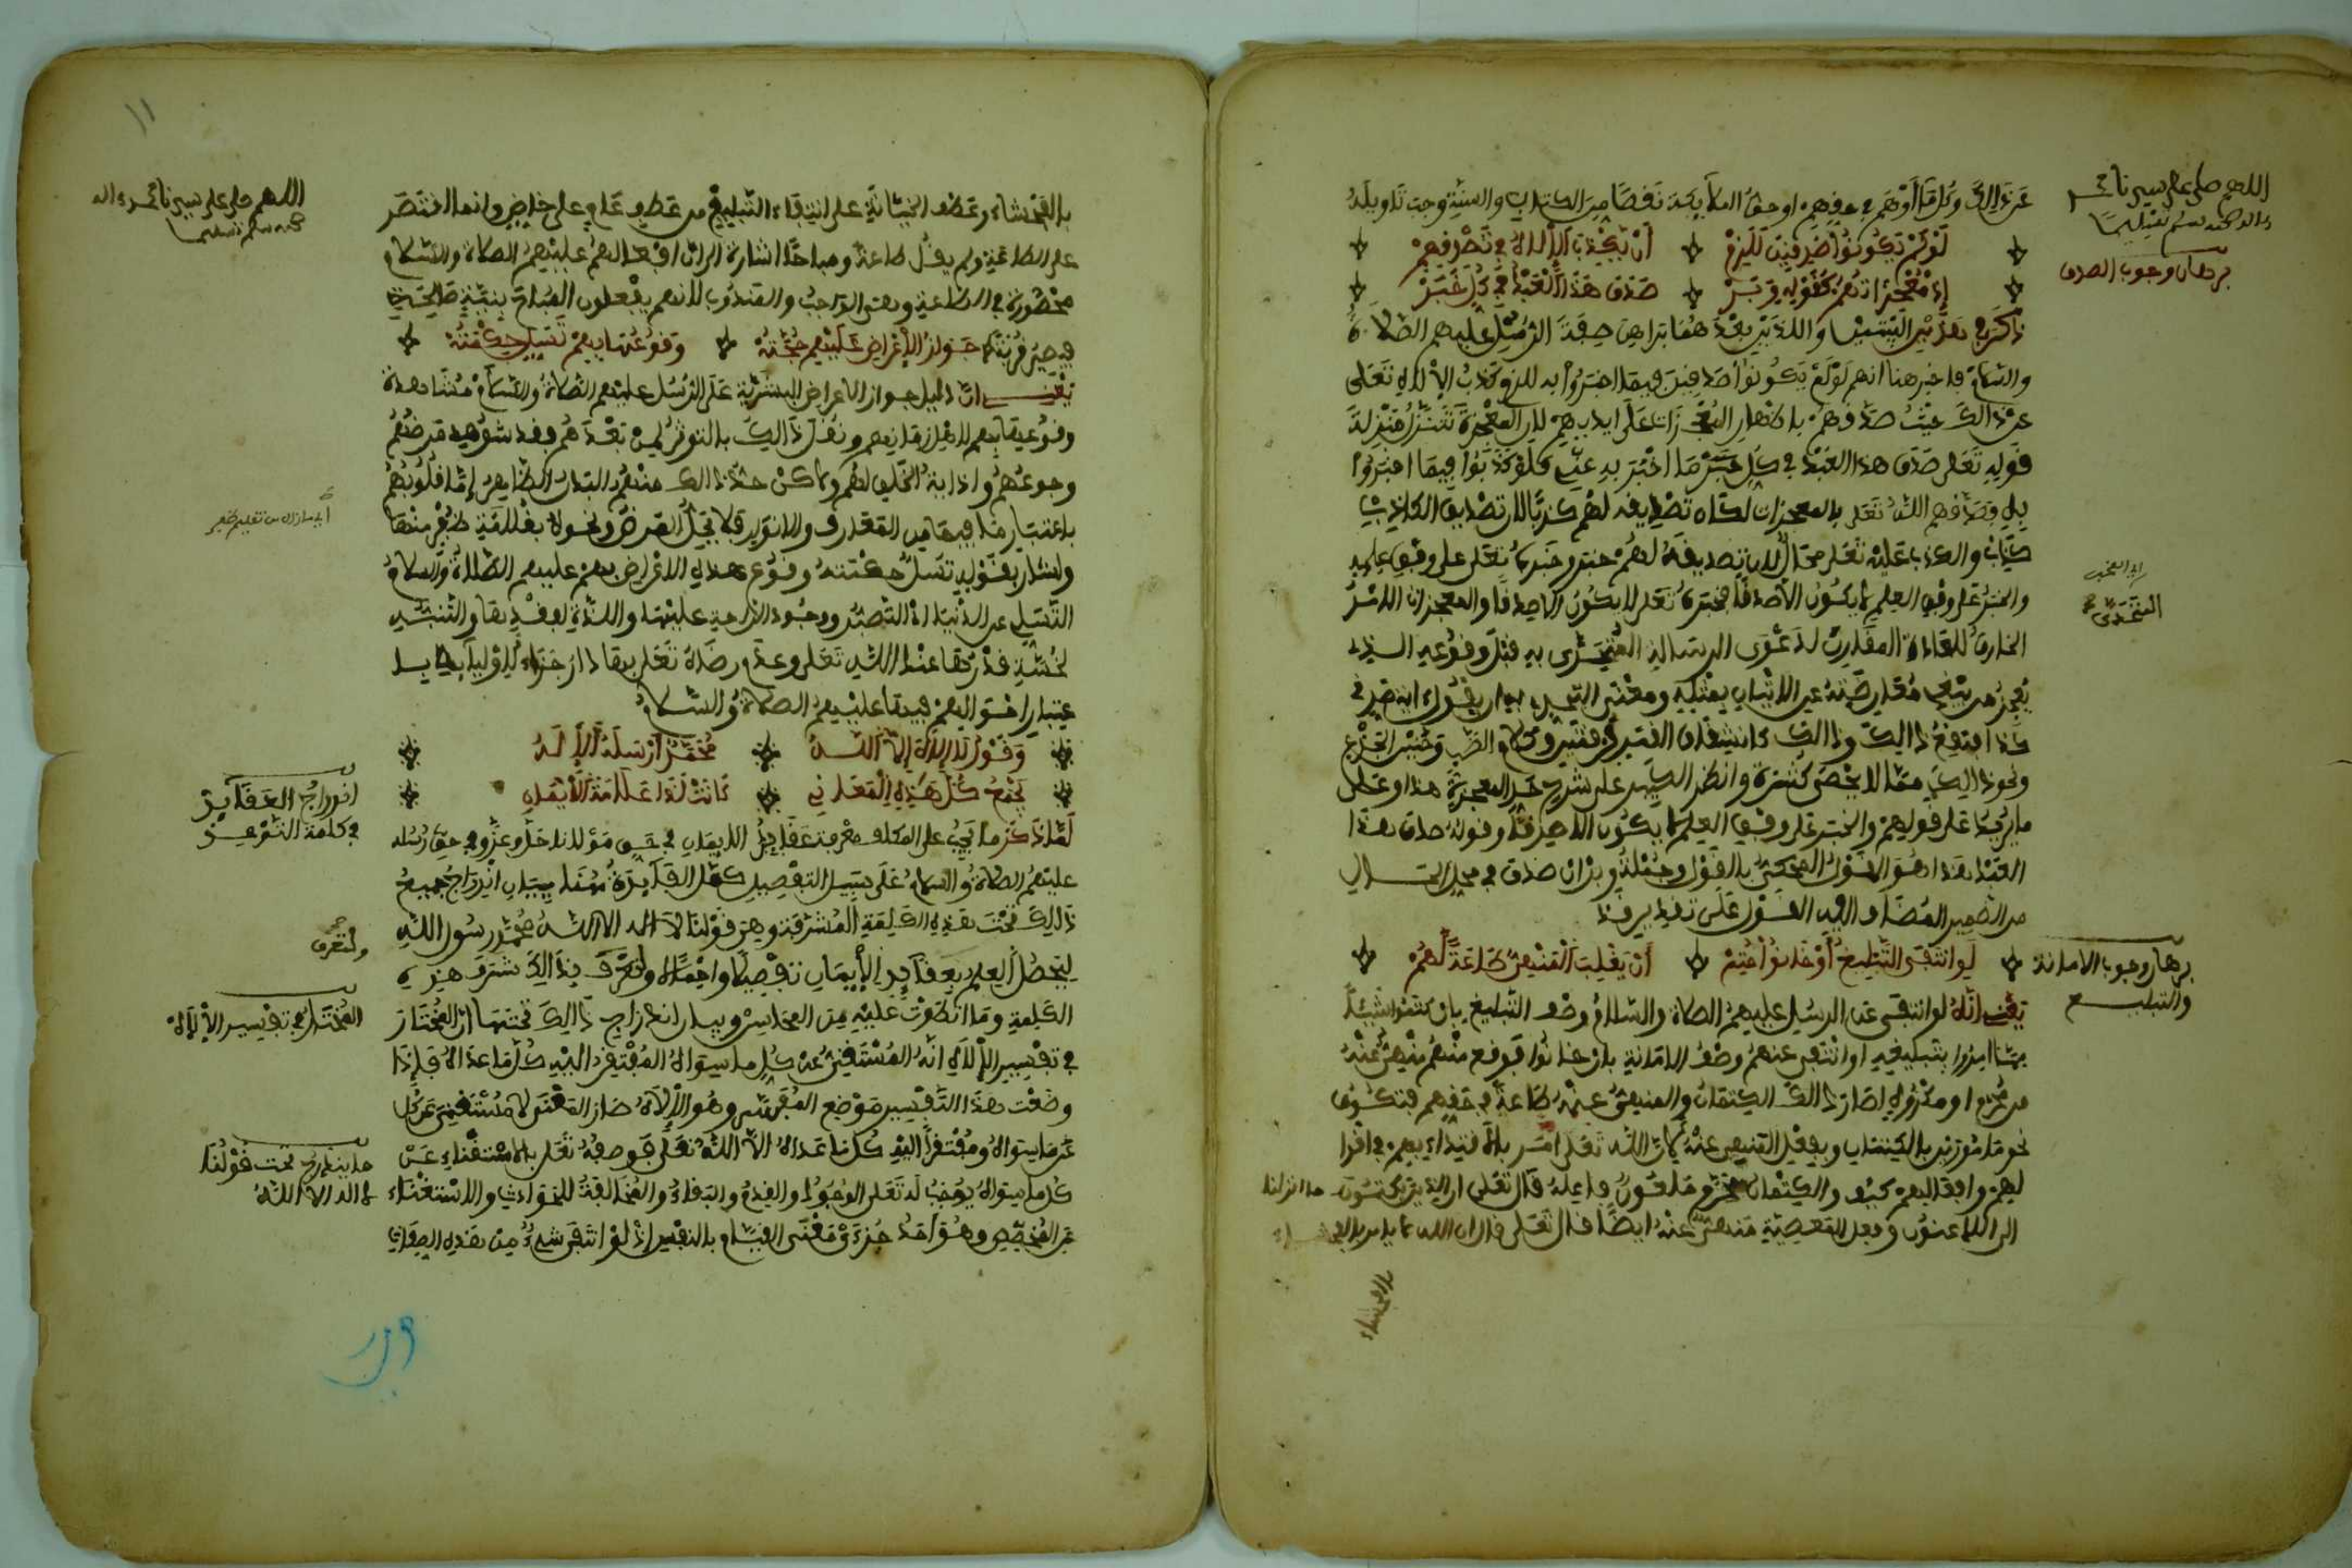 اللهم صل على سيدنا محمد
وآله وصحبه وسلم تسليما
برهان وجوب الصدق
عن ذالك وكل ما أوهم في حقهم او حق الملايكة نقصا من الكتاب والسنة وجب تاويله
لو لم يكونوا صدقين للزم أن يكذب الإلاه في تصديقهم
إذ معجزاتهم كقوله وبر صدق هذا العبد في كل خبر
ذكر في هذين البيتين واللذين بعدهما براهن صفة الرسل عليهم الصلاة
والسلام فاخبر هنا انهم لو لم يكونوا صادقين فيما اخبروا به للزم كذب الإلاه تعلى
عن ذالك حيث صدقهم باظهار المعجزات على ايديهم لان المعجزة تتنزل منزلة
قوله تعلى صدق هذا العبد في كل خبر ما اخبر به عني فلو كذبوا فيما اخبروا
به وصدقهم الله تعلى بالمعجزات لكان تصديقه لهم كذبا لان تصديق الكاذب
كذب والكذب عليه تعلى محال لان تصديقه لهم خبر وخبره تعلى على وفق علمه
والخبر على وفق العلم لا يكون الا صدقا فخبره تعلى لا يكون الا صدقا والمعجزات الامر
التحدي
الخارق للعادة المقارن لدعوى الرسالة المتحدى به قبل وقوعه الذي
يعجز من يبغي معارضته عن الاتيان بمثله ومعنى التحدي به ان يقول ءايتي
كذا فيقع ذالك وذالك كانشقاق القمر وكلام الضب وحنين الجذع
ونحو ذالك مما لا يحصى كثرة وانظر الكبير على شرح حد المعجزة هذا وعلى
ما يزيد على قولهم والخبر على وفق العلم لا يكون الا صدقا وقوله صدق هذا
العبد هذا هو القول المحكي بالقول وجملة وبر ان صدق في محل الحال
من الضمير المضاف اليه القول على تقدير قد
برهان وجوب الامانة
والتبليغ
لو انتفى التبليغ أو خانوا حتم أن يقلب المنهي طاعة لهم
يعني انه لو انتفى عن الرسل عليهم الصلاة والسلام وصف التبليغ بان كتموا شيئا
مما امروا بتبليغه او انتفى عنهم وصف الامانة بان خانوا فوقع منهم منهي عنه
من محرم او مكروه لصار ذالك الكتمان والمنهي عنه طاعة في حقهم فنكون
نحن مامورين بالكتمان وبفعل المنهي عنه لان الله تعلى امر بالاقتداء بهم في اقوا
لهم وافعالهم كيف والكتمان محرم ملعون فاعله قال تعلى ان الذين يكتمون ما انزلنا
الى اللاعنون وفعل المعصية منهي عنه ايضا قال تعلى قل ان الله لا يامر بالفحشاء
بالفحشاء
١١
اللهم صل على سيدنا محمد وءاله
وصحبه وسلم تسليما
بالفحشاء وعطف الخيانة على انتفاء التبليغ من عطف عام على خاص وانما اقتصر
على الطاعة ولم يقل طاعة ومباحا اشارة الى ان افعالهم عليهم الصلاة والسلام
محصورة في الطاعة وهي الواجب والمندوب لانهم يفعلون المباح بنية صالحة
فيصير قربة جواز الاعراض عليهم حجته وقوعها بهم تسل حكمته
يعني ان دليل جواز الاعراض البشرية على الرسل عليهم الصلاة والسلام مشاهدة
وقوعها بهم لاهل زمانهم ونقل ذالك بالتواتر لمن بعدهم فقد شوهد مرضهم
وجوعهم واذاية الخلق لهم ولاكن حد ذالك منهم البدن الظاهر اما قلوبهم
باعتبار ما فيها من المعارف والانوار فلا يخل المرض ونحوه بقلامة ظفر منها
واشار بقوله تسل حكمته وقوع هذه الاعراض بهم عليهم الصلاة والسلام
التسلي عن الدنيا اي التصبر ووجود الراحة عليها واللذة لفقدها والتنبيه
لخسة قدرها عند الله تعلى وعدم رضاه تعلى بها دار جزاء لاوليايه با
عتبار احوالهم فيها عليهم الصلاة والسلام
وقول لا إلاه إلا الله محمد أرسله الإلاه
يجمع كل هذه المعاني كانت لذا علامة الايمان
اندراج العقايد
في كلمة التوحيد
لما ذكر ما يجب على المكلف معرفته عقايد الايمان في حق مولانا جل وعز وفي حق رسله
عليهم الصلاة والسلام على سبيل التفصيل كمل الفايدة هنا ببيان اندراج جميع
ذالك تحت هذه الكلمة المشرفة وهي قولنا لا اله الا الله محمد رسول الله
ليحصل العلم بعقايد الإيمان تفصيلا واجمالا ولتعرف بذالك شرف هذه
ولتعرف
المختار في تفسير الإلاه
الكلمة وما انطوت عليه من المحاسن وبيان اندراج ذالك تحتها ان المختار
في تفسير الإلاه انه المستغني عن كل ما سواه المفتقر اليه كل ما عداه فإذا
وضعت هذا التفسير موضع المفسر وهو الإلاه صار المعنى لا مستغني عن كل
ما يندرج تحت قولنا
لا اله الا الله
عن ما سواه ومفتقرا اليه كل ما عداه الا الله تعلى فوصفه تعلى بالاستغناء عن
كل ما سواه يوجب له تعلى الوجود والقدم والبقاء والمخالفة للحوادث والاستغناء
عن المخصص وهو احد جزءي معنى القيام بالنفس إذ لو انتفى شيء من هذه الصفات